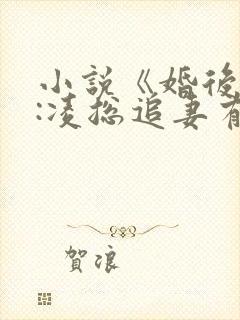 小説《婚後
:凌总追妻有
賀浪